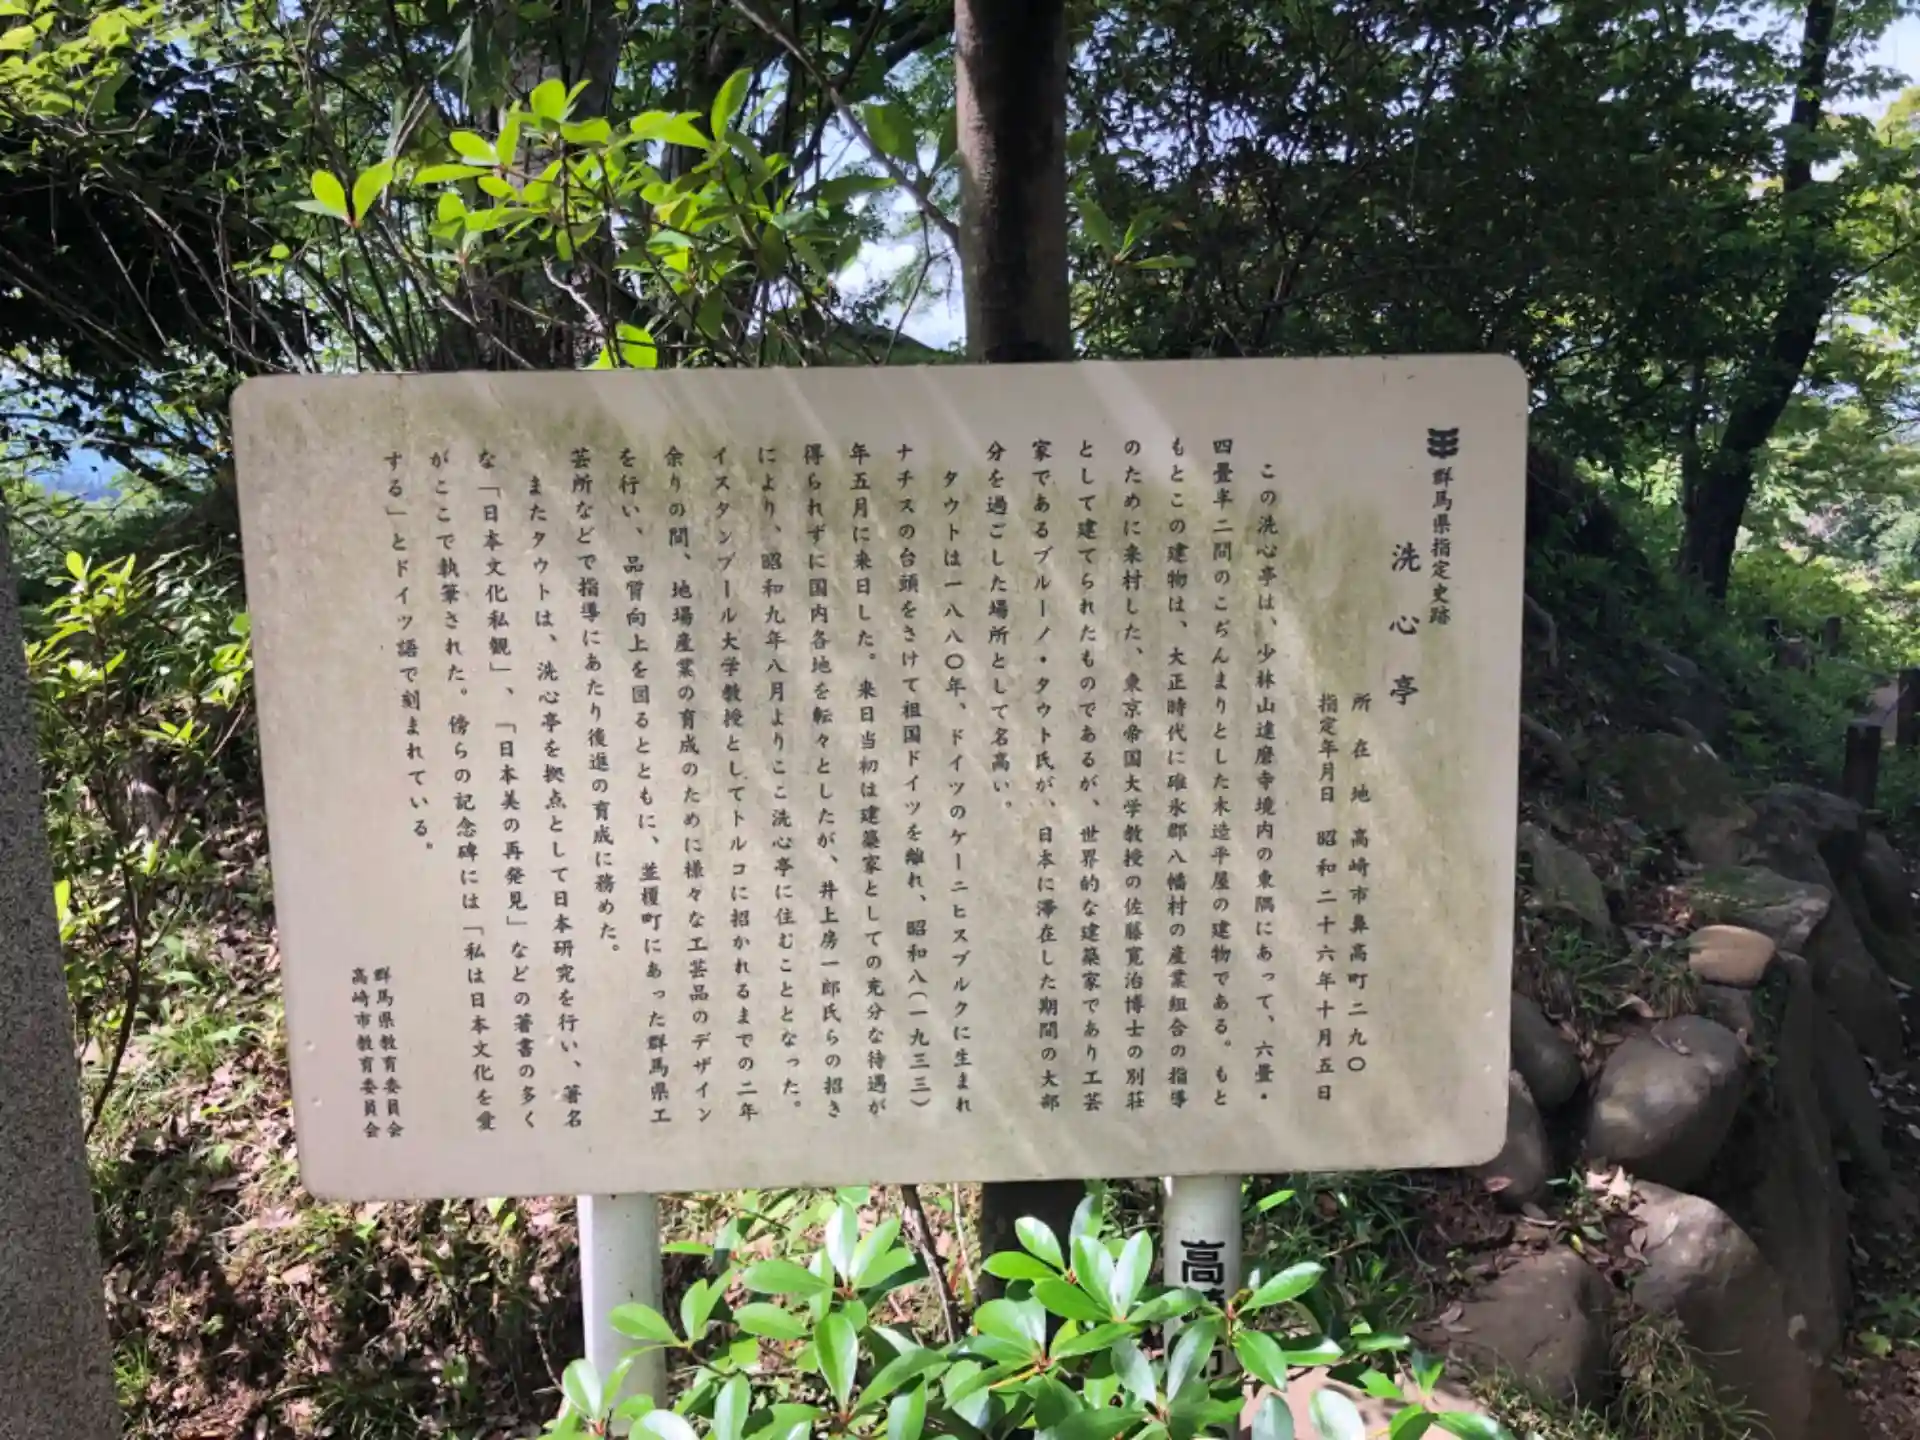 群馬県指定史跡
洗心亭
所在地 高崎市鼻高町二九〇
指定年月日 昭和二十六年十月五日
この洗心亭は、少林山達磨寺境内の東隅にあって、六畳・
四畳半二間のこぢんまりとした木造平屋の建物である。もと
もとこの建物は、大正時代に碓氷郡八幡村の産業組合の指導
のために来村した、東京帝国大学教授の佐藤寛治博士の別荘
として建てられたものであるが、世界的な建築家であり工芸
家であるブルーノ・タウト氏が、日本に滞在した期間の大部
分を過ごした場所として名高い。
タウトは一八八〇年、ドイツのケーニヒスブルクに生まれ
ナチスの台頭をさけて祖国ドイツを離れ、昭和八(一九三三)
年五月に来日した。来日当初は建築家としての充分な待遇が
得られずに国内各地を転々としたが、井上房一郎氏らの招き
により、昭和九年八月よりここ洗心亭に住むこととなった。
イスタンブール大学教授としてトルコに招かれるまでの二年
余りの間、地場産業の育成のために様々な工芸品のデザイン
を行い、品質向上を図るとともに、並榎町にあった群馬県工
芸所などで指導にあたり後進の育成に務めた。
またタウトは、洗心亭を拠点として日本研究を行い、著名
な「日本文化私観」、「日本美の再発見」などの著書の多く
がここで執筆された。傍らの記念碑には「私は日本文化を愛
する」とドイツ語で刻まれている。
群馬県教育委員会
高崎市教育委員会
高